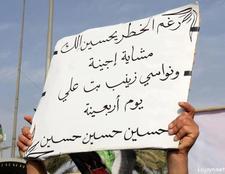 رغم الخطر يحسين الك
مشاية اجينة
ونواسي زينب بت علي
يوم أربعينة
حسين حسين حسين